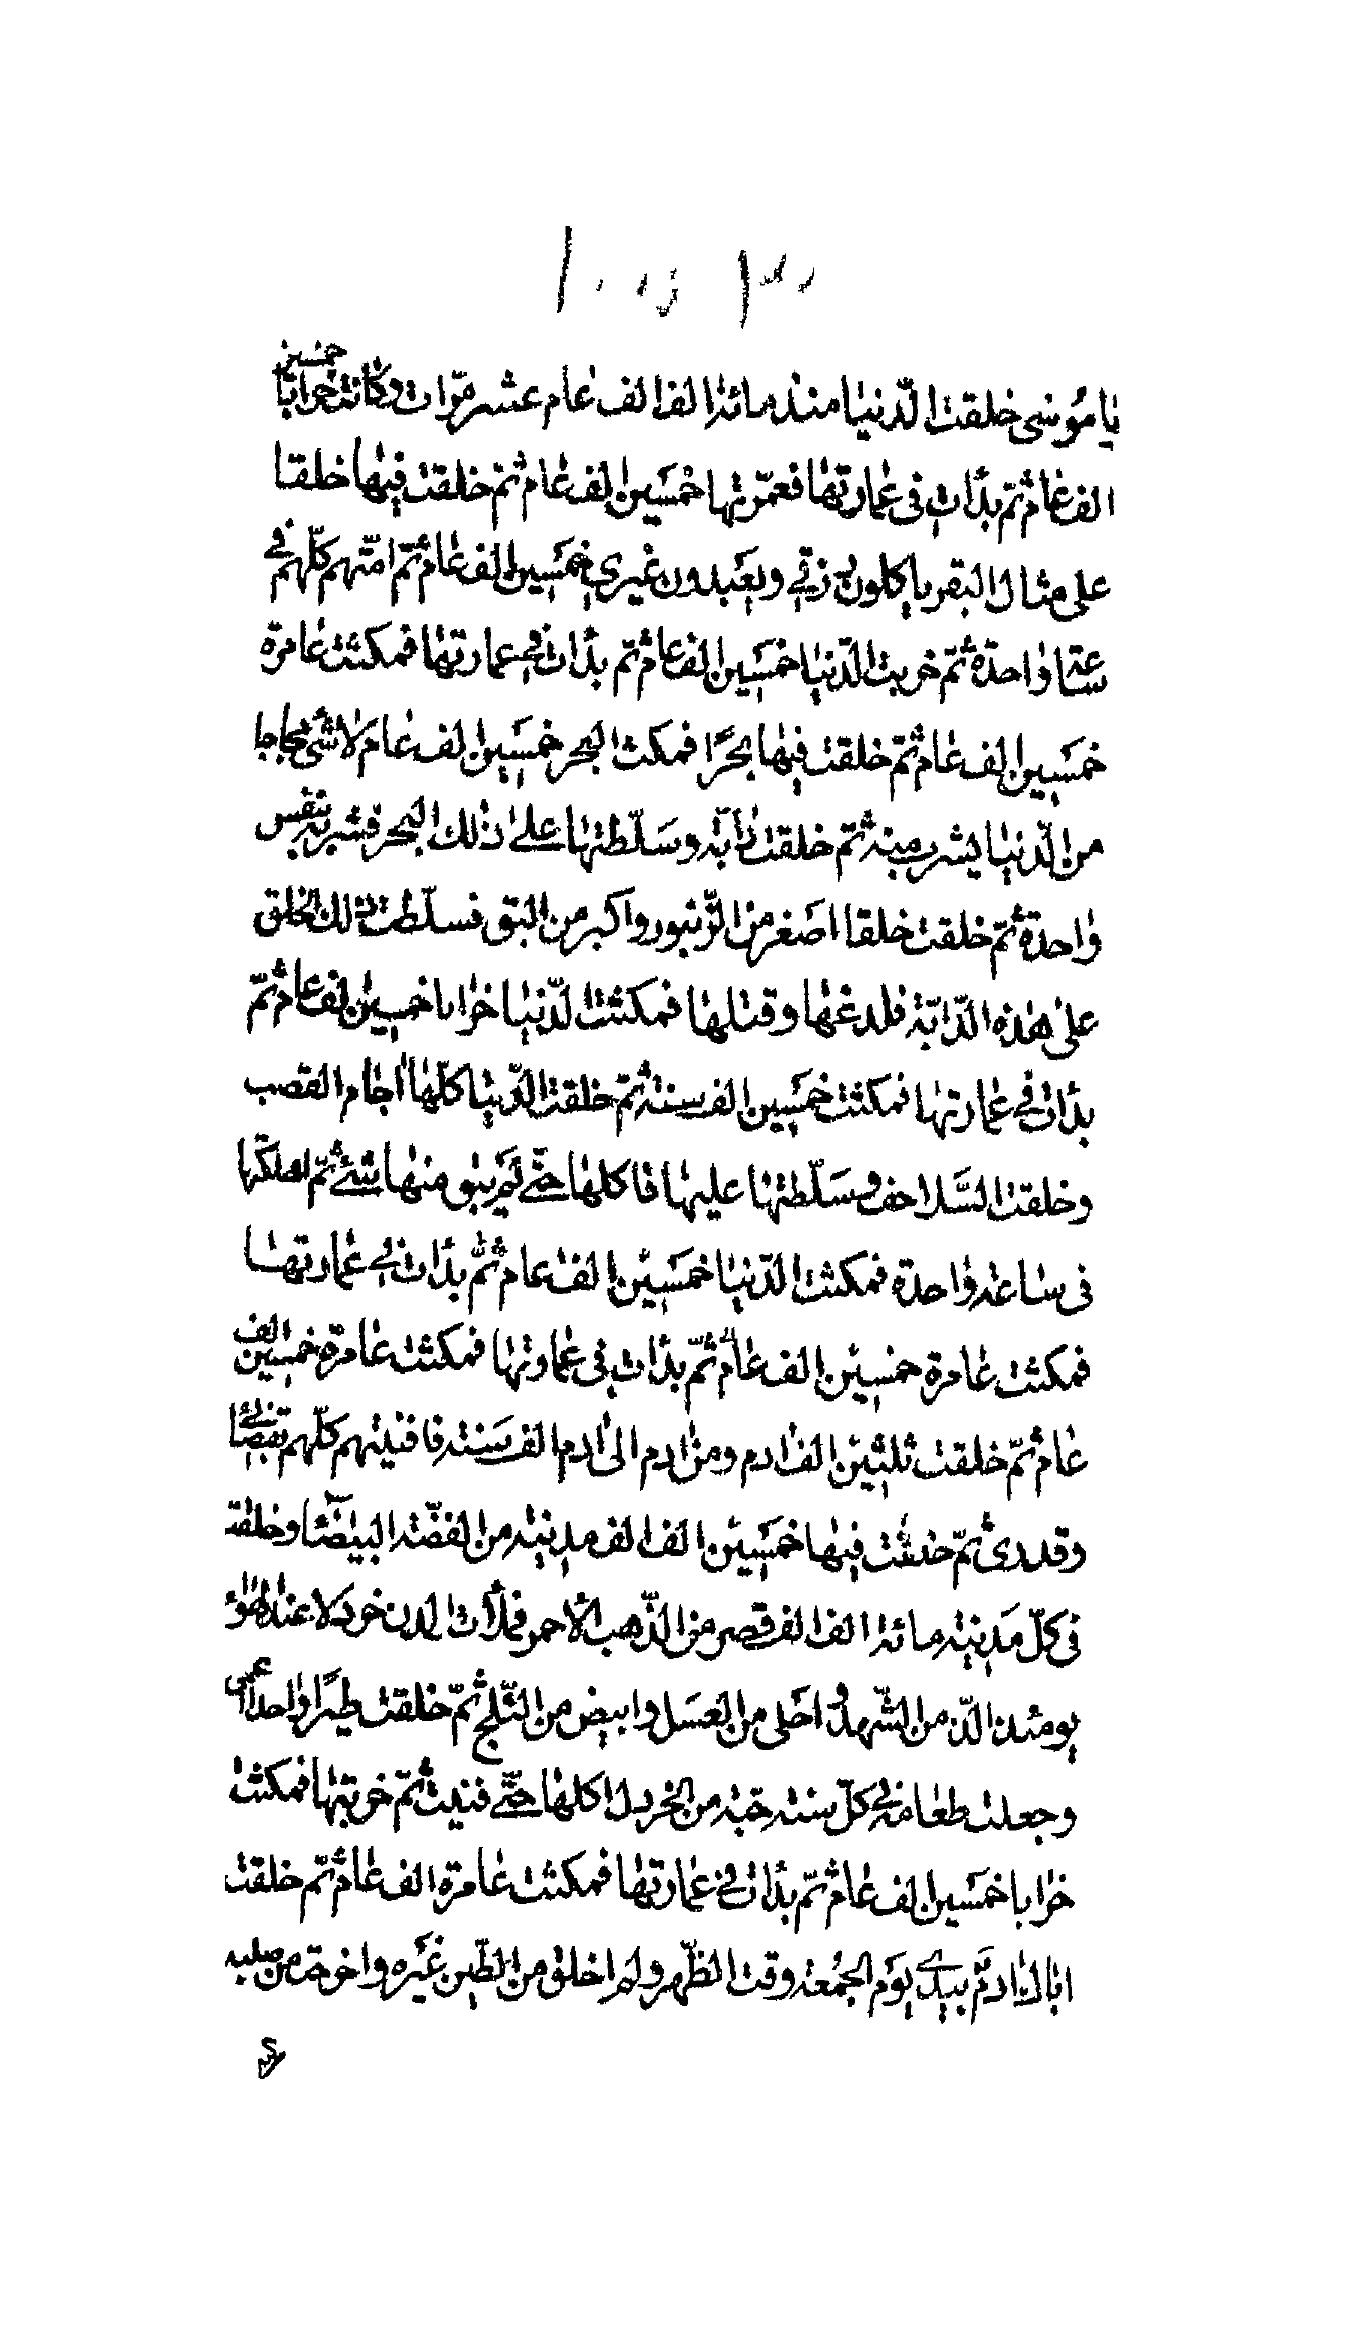 يا موسى خلقت الدّنيا منذ مائة الف الف عام عشر مرّات وكانت خرابا خمسين
الف عام ثمّ بدأت فى عمارتها فعمّرتها خمسين الف عام ثم خلقت فيها خلقا
على مثال البقر ياكلون رزقي ويعبدون غيري خمسين الف عام ثمّ امتّهم كلّهم في
ساعة واحدة ثمّ خربت الدّنيا خمسين الف عام ثمّ بدأت في عمارتها فمكثت عامرة
خمسين الف عام ثمّ خلقت فيها بحرًا فمكث البحر خمسين الف عام لا شئ مجاجا
من الدّنيا يشرب منه ثمّ خلقت دابّة وسلّطتها على ذلك البحر فشربه بنفس
واحدة ثمّ خلقت خلقا اصغر من الزّنبور واكبر من البق فسلّطت ذلك الخلق
على هذه الدّابّة فلدغها وقتلها فمكثت الدّنيا خرابا خمسين الف عام ثمّ
بدأت في عمارتها فمكثت خمسين الف سنة ثمّ خلقت الدّنيا كلّها اجام القصب
وخلقت السّلاحف وسلّطتها عليها فاكلها حتّى لم يبق منها شئ ثمّ اهلكتها
فى ساعة واحدة فمكثت الدّنيا خمسين الف عام ثمّ بدأت في عمارتها
فمكثت عامرة خمسين الف عام ثمّ بدأت فى عمارتها فمكثت عامرة خمسين الف
عام ثمّ خلقت ثلثين الف ادم ومن ادم الى ادم الف سنة فافنيتهم كلّهم بقضائي
وقدرى ثمّ خلقت فيها خمسين الف الف مدينة من الفضّة البيضآء وخلقت
فى كلّ مدينة مائة الف الف قصر من الذّهب الاحمر فملأت المدن خردلا عند الهواء
يومئذ الذّ من الشّهد واحلى من العسل وابيض من الثّلج ثمّ خلقت طيرًا واحدًا اعمى
وجعلت طعامه في كلّ سنة حبّة من الخردل اكلها حتّى فنيت ثمّ خربتها فمكثت
خرابا خمسين الف عام ثمّ بدأت في عمارتها فمكثت عامرة الف عام ثمّ خلقت
اباك ادم بيدي يوم الجمعة وقت الظّهر ولم اخلق من الطّين غيره واخرجت من صلبه